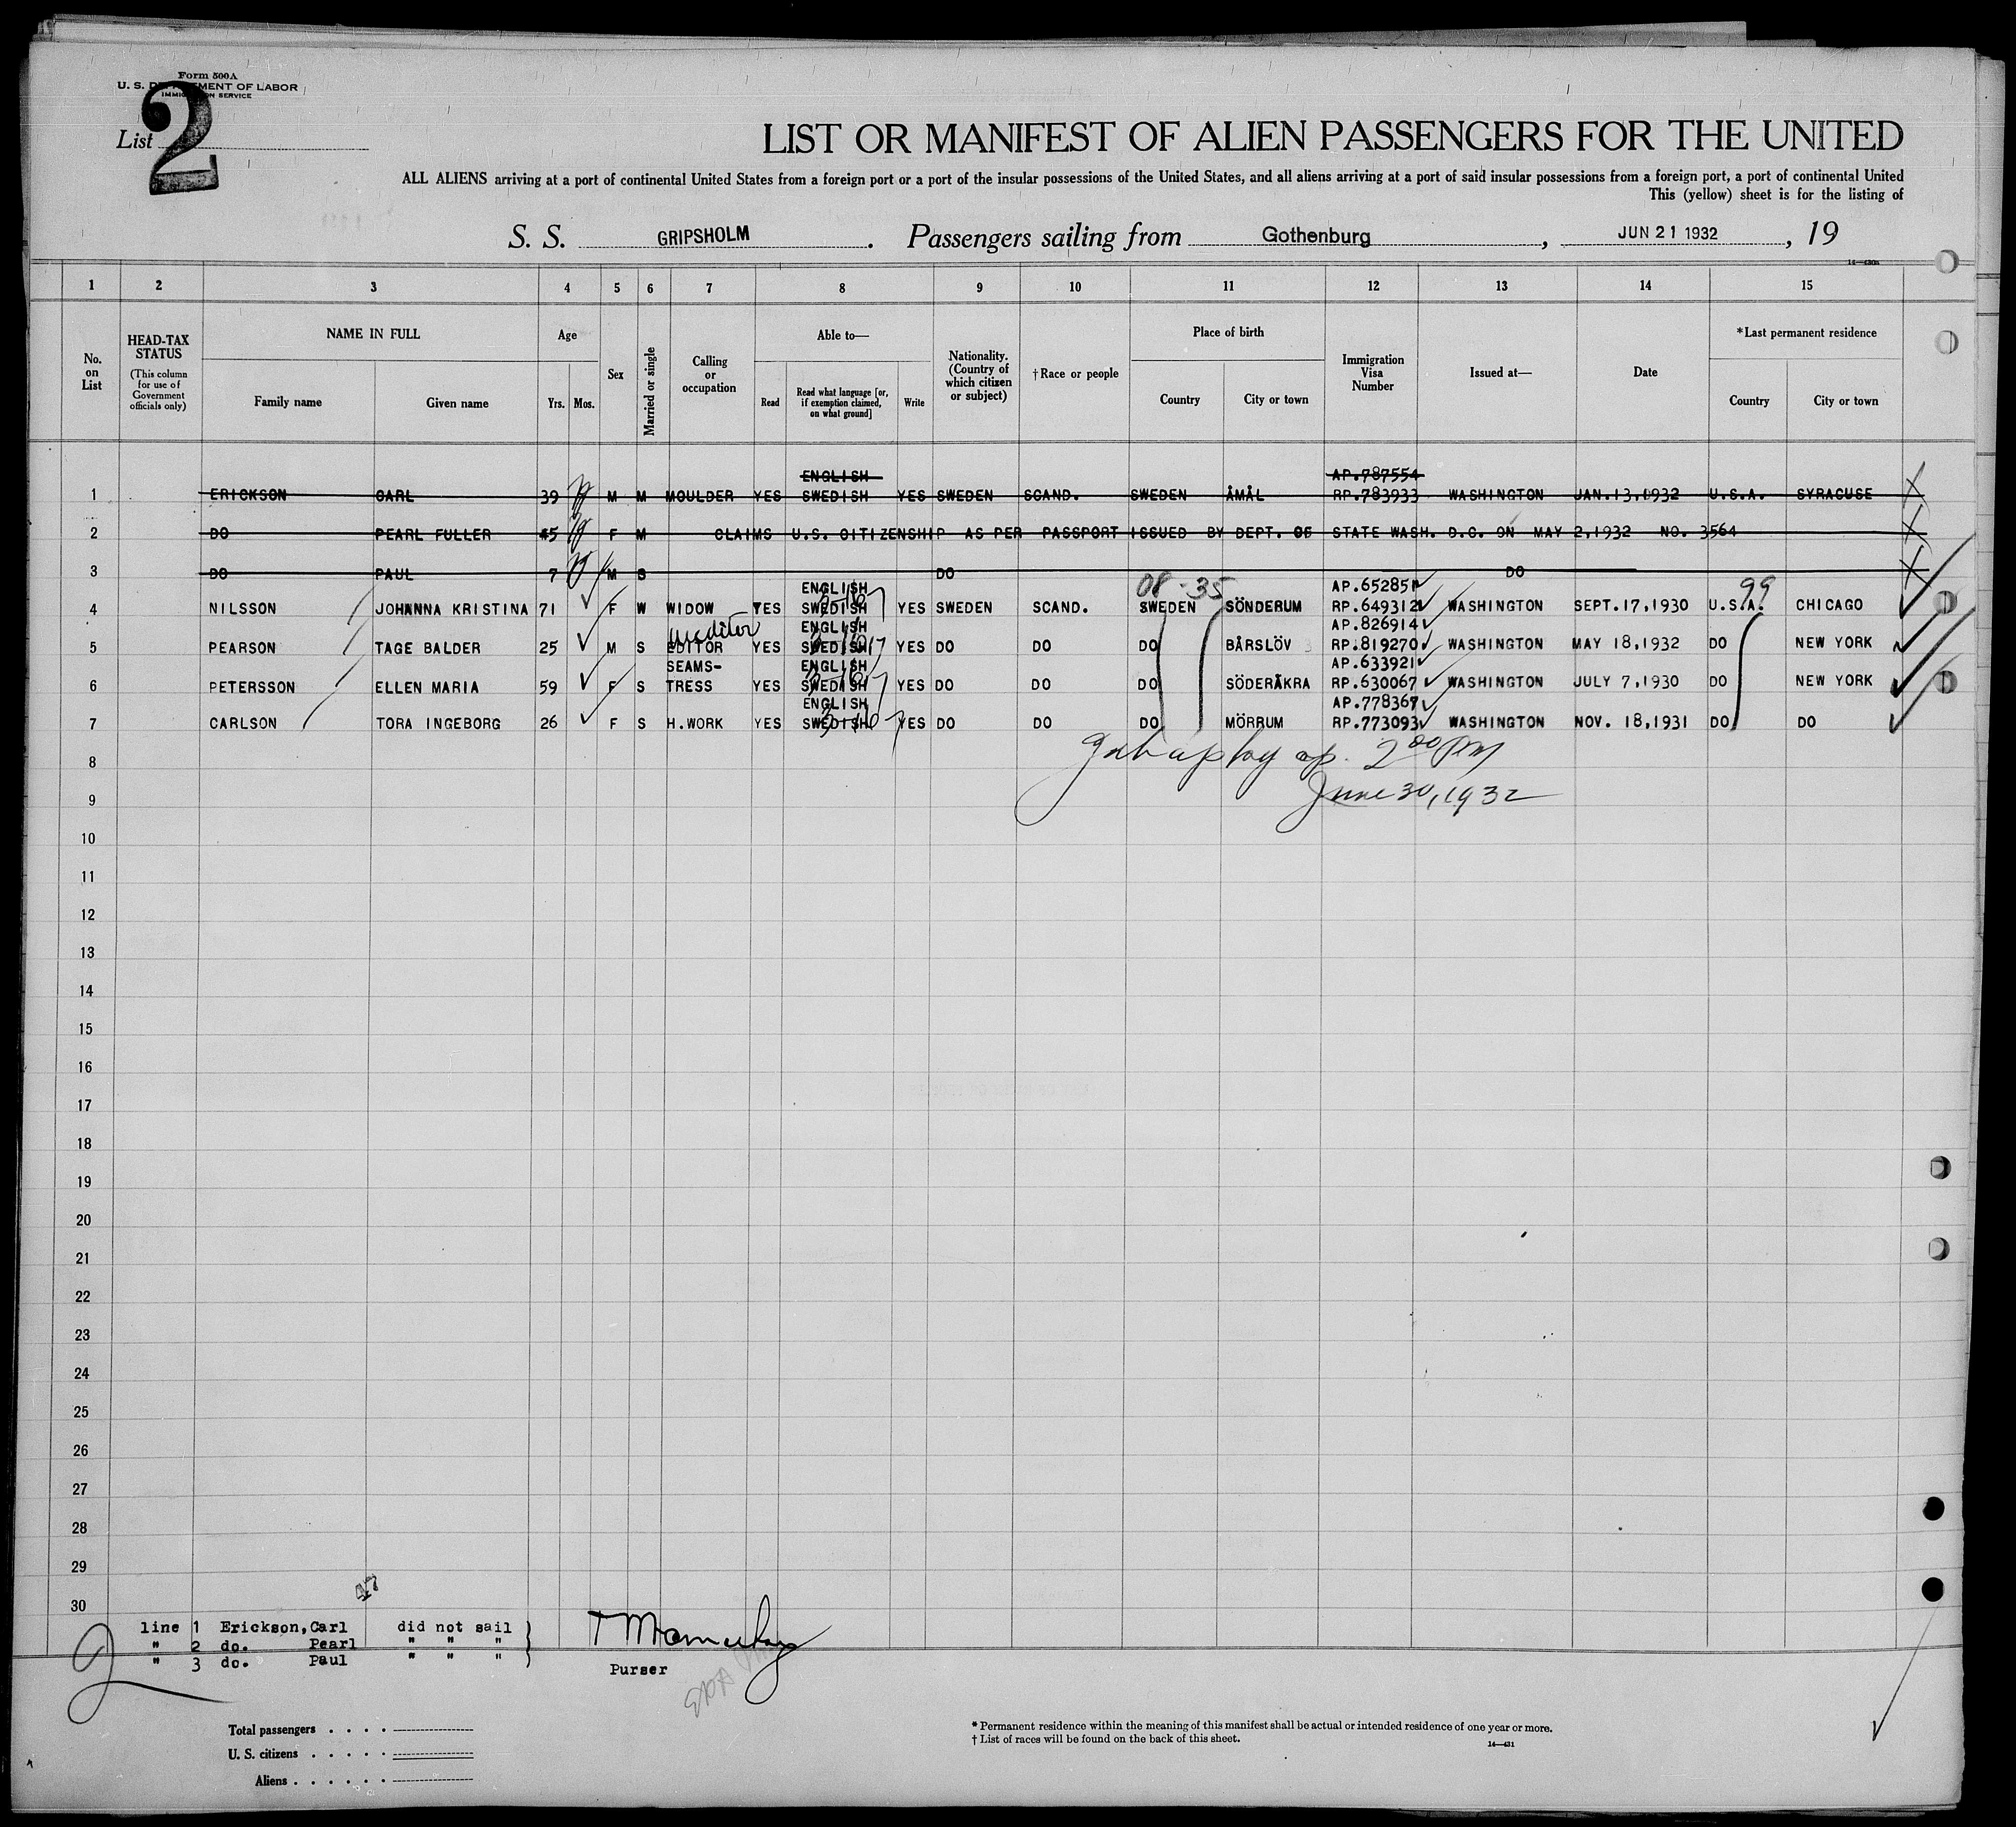 Form 500A
U. S. DEPARTMENT OF LABOR
IMMIGRATION SERVICE
List 2
LIST OR MANIFEST OF ALIEN PASSENGERS FOR THE UNITED
ALL ALIENS arriving at a port of continental United States from a foreign port or a port of the insular possessions of the United States, and all aliens arriving at a port of said insular possessions from a foreign port, a port of continental United
This (yellow) sheet is for the listing of
S. S. GRIPSHOLM. Passengers sailing from Gothenburg, JUN 21 1932, 19
14-430a
1 2 3 4 5 6 7 8 9 10 11 12 13 14 15
No. on List
HEAD-TAX STATUS
(This column for use of Government officials only)
NAME IN FULL
Family name Given name
Age
Yrs. Mos.
Sex
Married or single
Calling or occupation
Able to—
Read Read what language [or, if exemption claimed, on what ground] Write
Nationality. (Country of which citizen or subject)
†Race or people
Place of birth
Country City or town
Immigration Visa Number
Issued at—
Date
*Last permanent residence
Country City or town
ENGLISH AP.787554
1 ERICKSON CARL 39 M M MOULDER YES SWEDISH YES SWEDEN SCAND. SWEDEN ÅMÅL RP.783933 WASHINGTON JAN.13,1932 U.S.A. SYRACUSE X
2 DO PEARL FULLER 45 F M CLAIMS U.S. CITIZENSHIP AS PER PASSPORT ISSUED BY DEPT. OF STATE WASH. D.C. ON MAY 2,1932 NO. 3564 X
3 DO PAUL 7 M S DO DO X
ENGLISH 08-35 AP.652851 99
4 NILSSON JOHANNA KRISTINA 71 F W WIDOW YES SWEDISH YES SWEDEN SCAND. SWEDEN SÖNDERUM RP.649312 WASHINGTON SEPT.17,1930 U.S.A. CHICAGO
ENGLISH AP.826914
5 PEARSON TAGE BALDER 25 M S EDITOR YES SWEDISH YES DO DO DO BÅRSLÖV RP.819270 WASHINGTON MAY 18,1932 DO NEW YORK
SEAMS- ENGLISH AP.633921
6 PETERSSON ELLEN MARIA 59 F S TRESS YES SWEDISH YES DO DO DO SÖDERÅKRA RP.630067 WASHINGTON JULY 7,1930 DO NEW YORK
ENGLISH AP.778367
7 CARLSON TORA INGEBORG 26 F S H.WORK YES SWEDISH YES DO DO DO MÖRRUM RP.773093 WASHINGTON NOV. 18,1931 DO DO
8 2 00 PM
9 June 30, 1932
10
11
12
13
14
15
16
17
18
19
20
21
22
23
24
25
26
27
28
29
30
line 1 Erickson, Carl did not sail
" 2 do. Pearl " " "
" 3 do. Paul " " "
Purser
2
Total passengers . . . .
U. S. citizens . . . . .
Aliens . . . . . .
* Permanent residence within the meaning of this manifest shall be actual or intended residence of one year or more.
† List of races will be found on the back of this sheet.
14-431